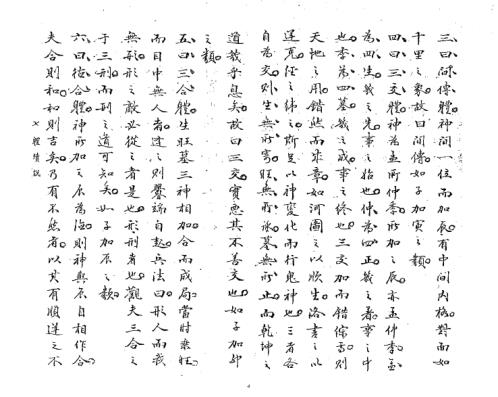 三曰間傳體神間一位而加辰有中間內格對而如
千里之象故曰間傳如子加寅之類
四曰三交體神為孟所仲季所加之辰亦孟仲季孟
為四生義之先事之始也仲為四正義之著事之中
也季為四墓義之成事之終也三交加而錯綜焉則
天地之用錯然而成章如河圖之以順生洛書之以
逆克經之緯之斯足以神變化而行鬼神也三者各
自為交則生無所寄旺無所承墓無所止而乾坤之
道幾乎息矣故曰三交實惡其不善交也如子加卯
之類
五曰三合體生旺墓三神相加合而成局當時乘旺
而目中無人者達之則釁端自起兵法曰形人而我
無形形之敵必從之者是也形刑者也觀夫三合之
于三刑而刑之道可知矣如子加辰之類
六曰德合體神所加之辰為治則神與辰自相作合
夫合則和和則吉矣乃有不然者以其有順逆之不
七體續說